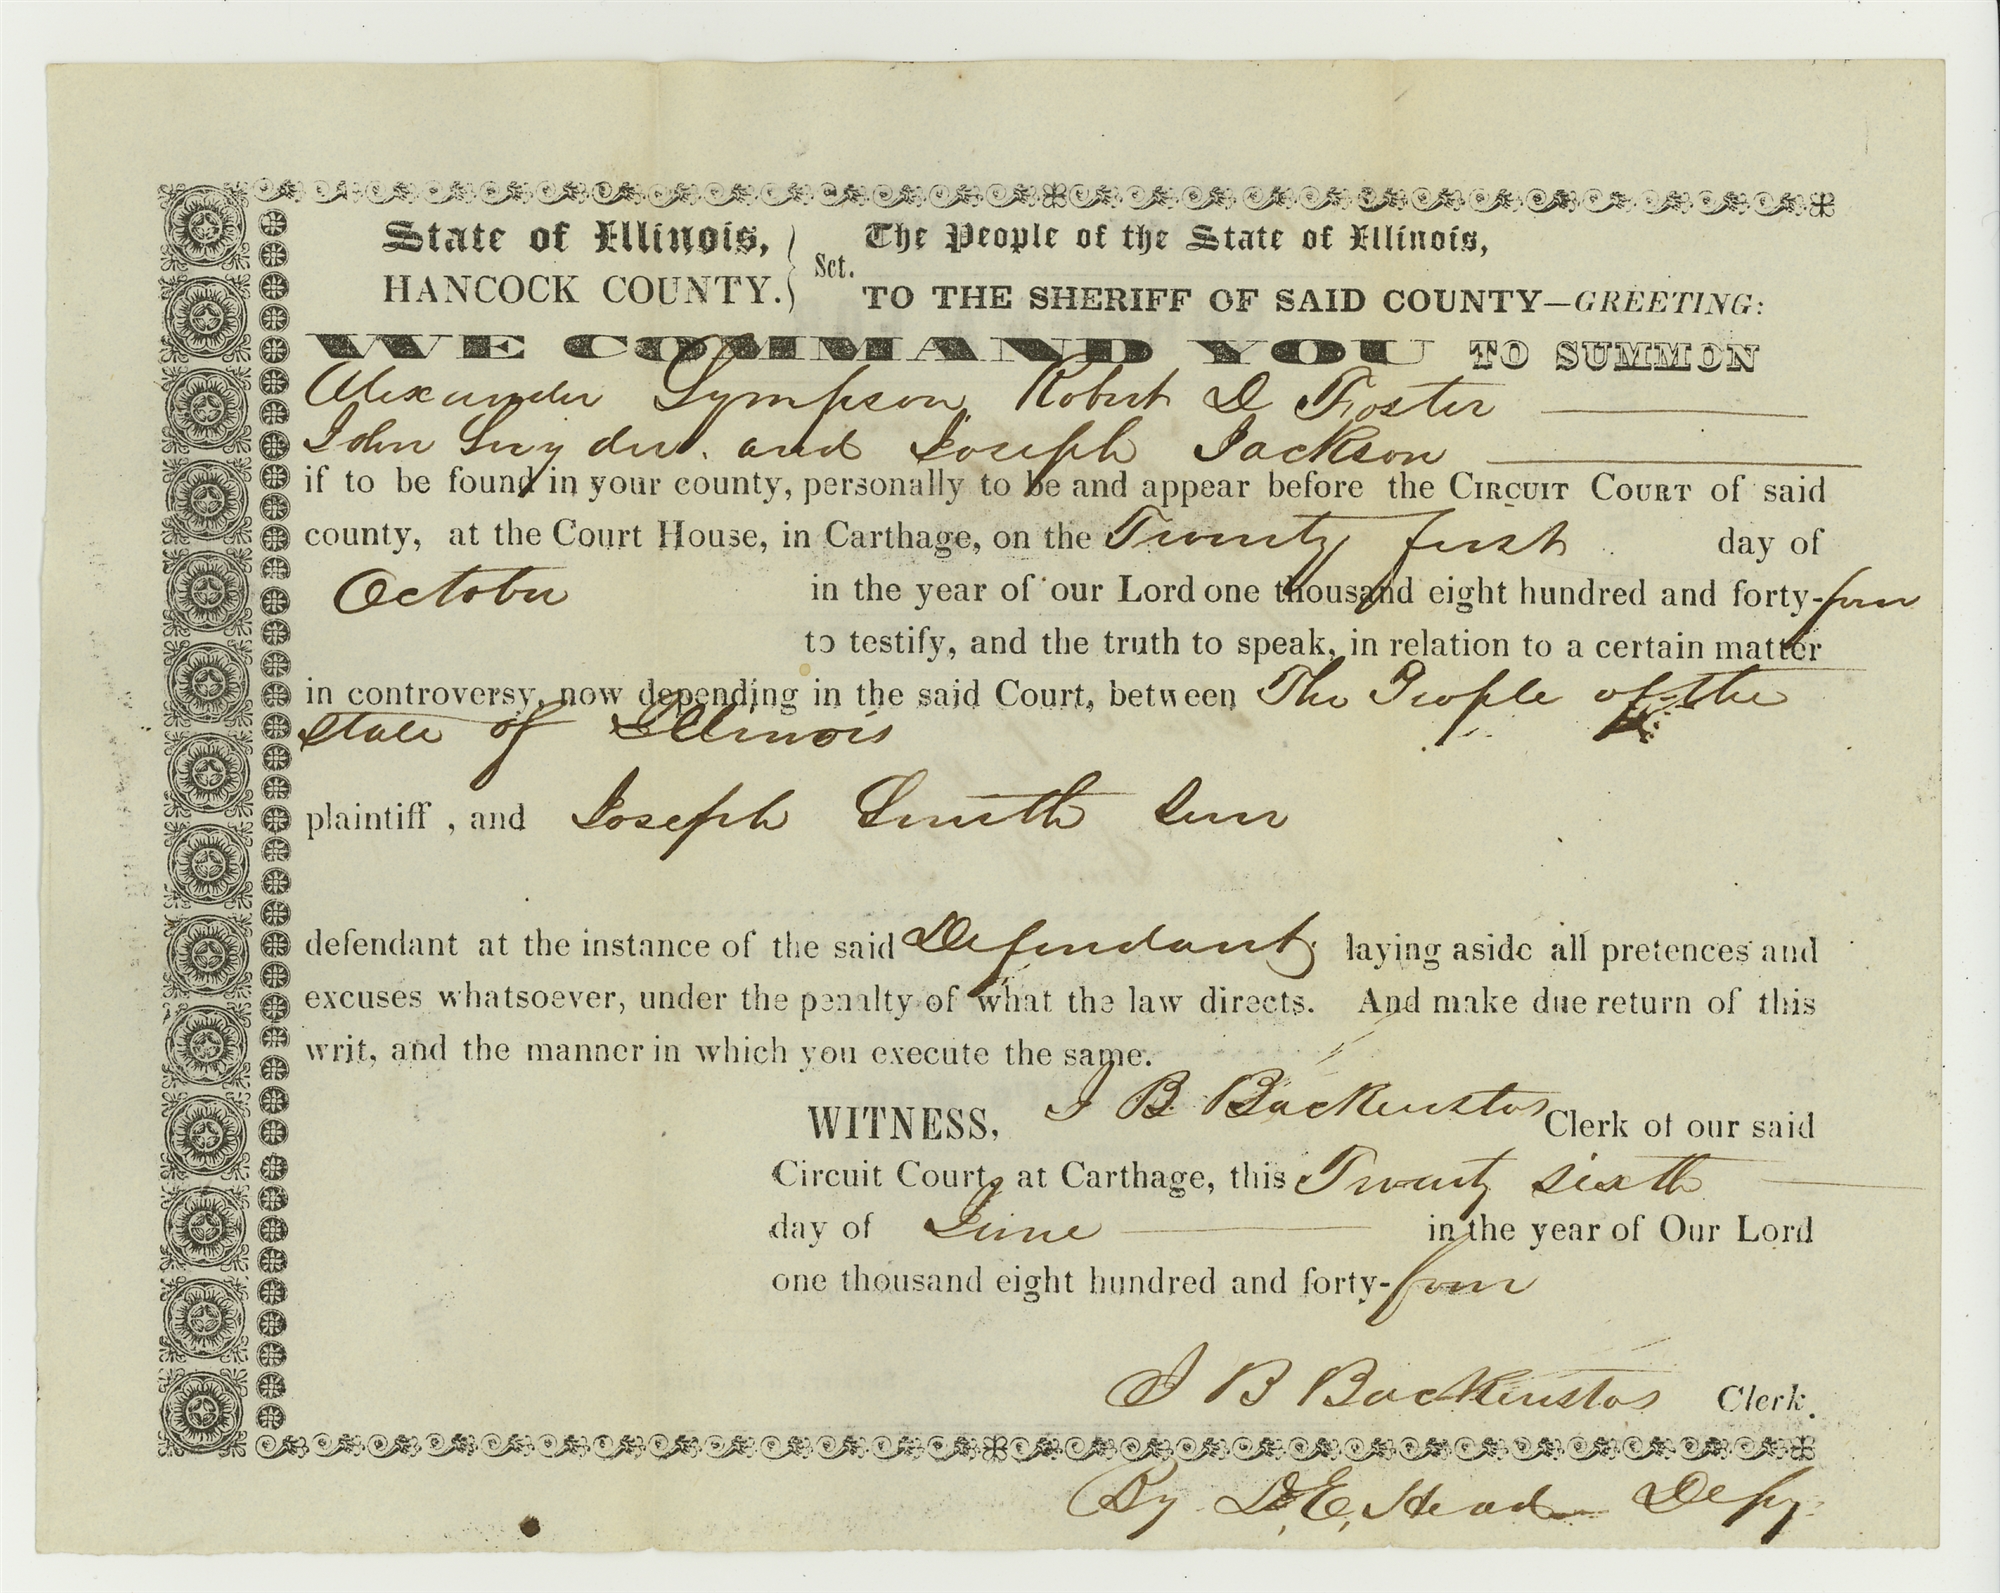 State of Illinois, } Sct. The People of the State of Illinois,
HANCOCK COUNTY. TO THE SHERIFF OF SAID COUNTY—GREETING:
WE COMMAND YOU TO SUMMON
Alexander Sympson, Robert D Foster
John Snyder. and Joseph Jackson
if to be found in your county, personally to be and appear before the CIRCUIT COURT of said
county, at the Court House, in Carthage, on the Twenty first day of
October in the year of our Lord one thousand eight hundred and forty-four
to testify, and the truth to speak, in relation to a certain matter
in controversy, now depending in the said Court, between The People of the
State of Illinois
plaintiff, and Joseph Smith Senr
defendant at the instance of the said Defendant, laying aside all pretences and
excuses whatsoever, under the penalty of what the law directs. And make due return of this
writ, and the manner in which you execute the same.
WITNESS, J B Backenstos Clerk of our said
Circuit Court, at Carthage, this Twenty sixth
day of June in the year of Our Lord
one thousand eight hundred and forty-four
J B Backenstos Clerk.
By D. E. Head Depy